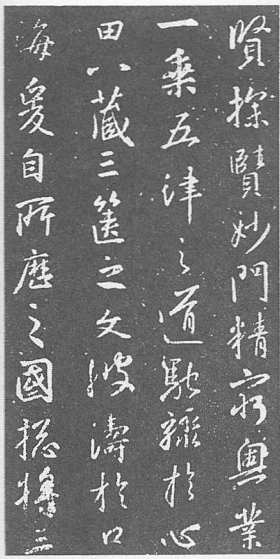 賢探賾妙門精窮奧業
一乘五律之道馳驟於心
田八藏三篋之文波濤於口
海爰自所歷之國揔將三